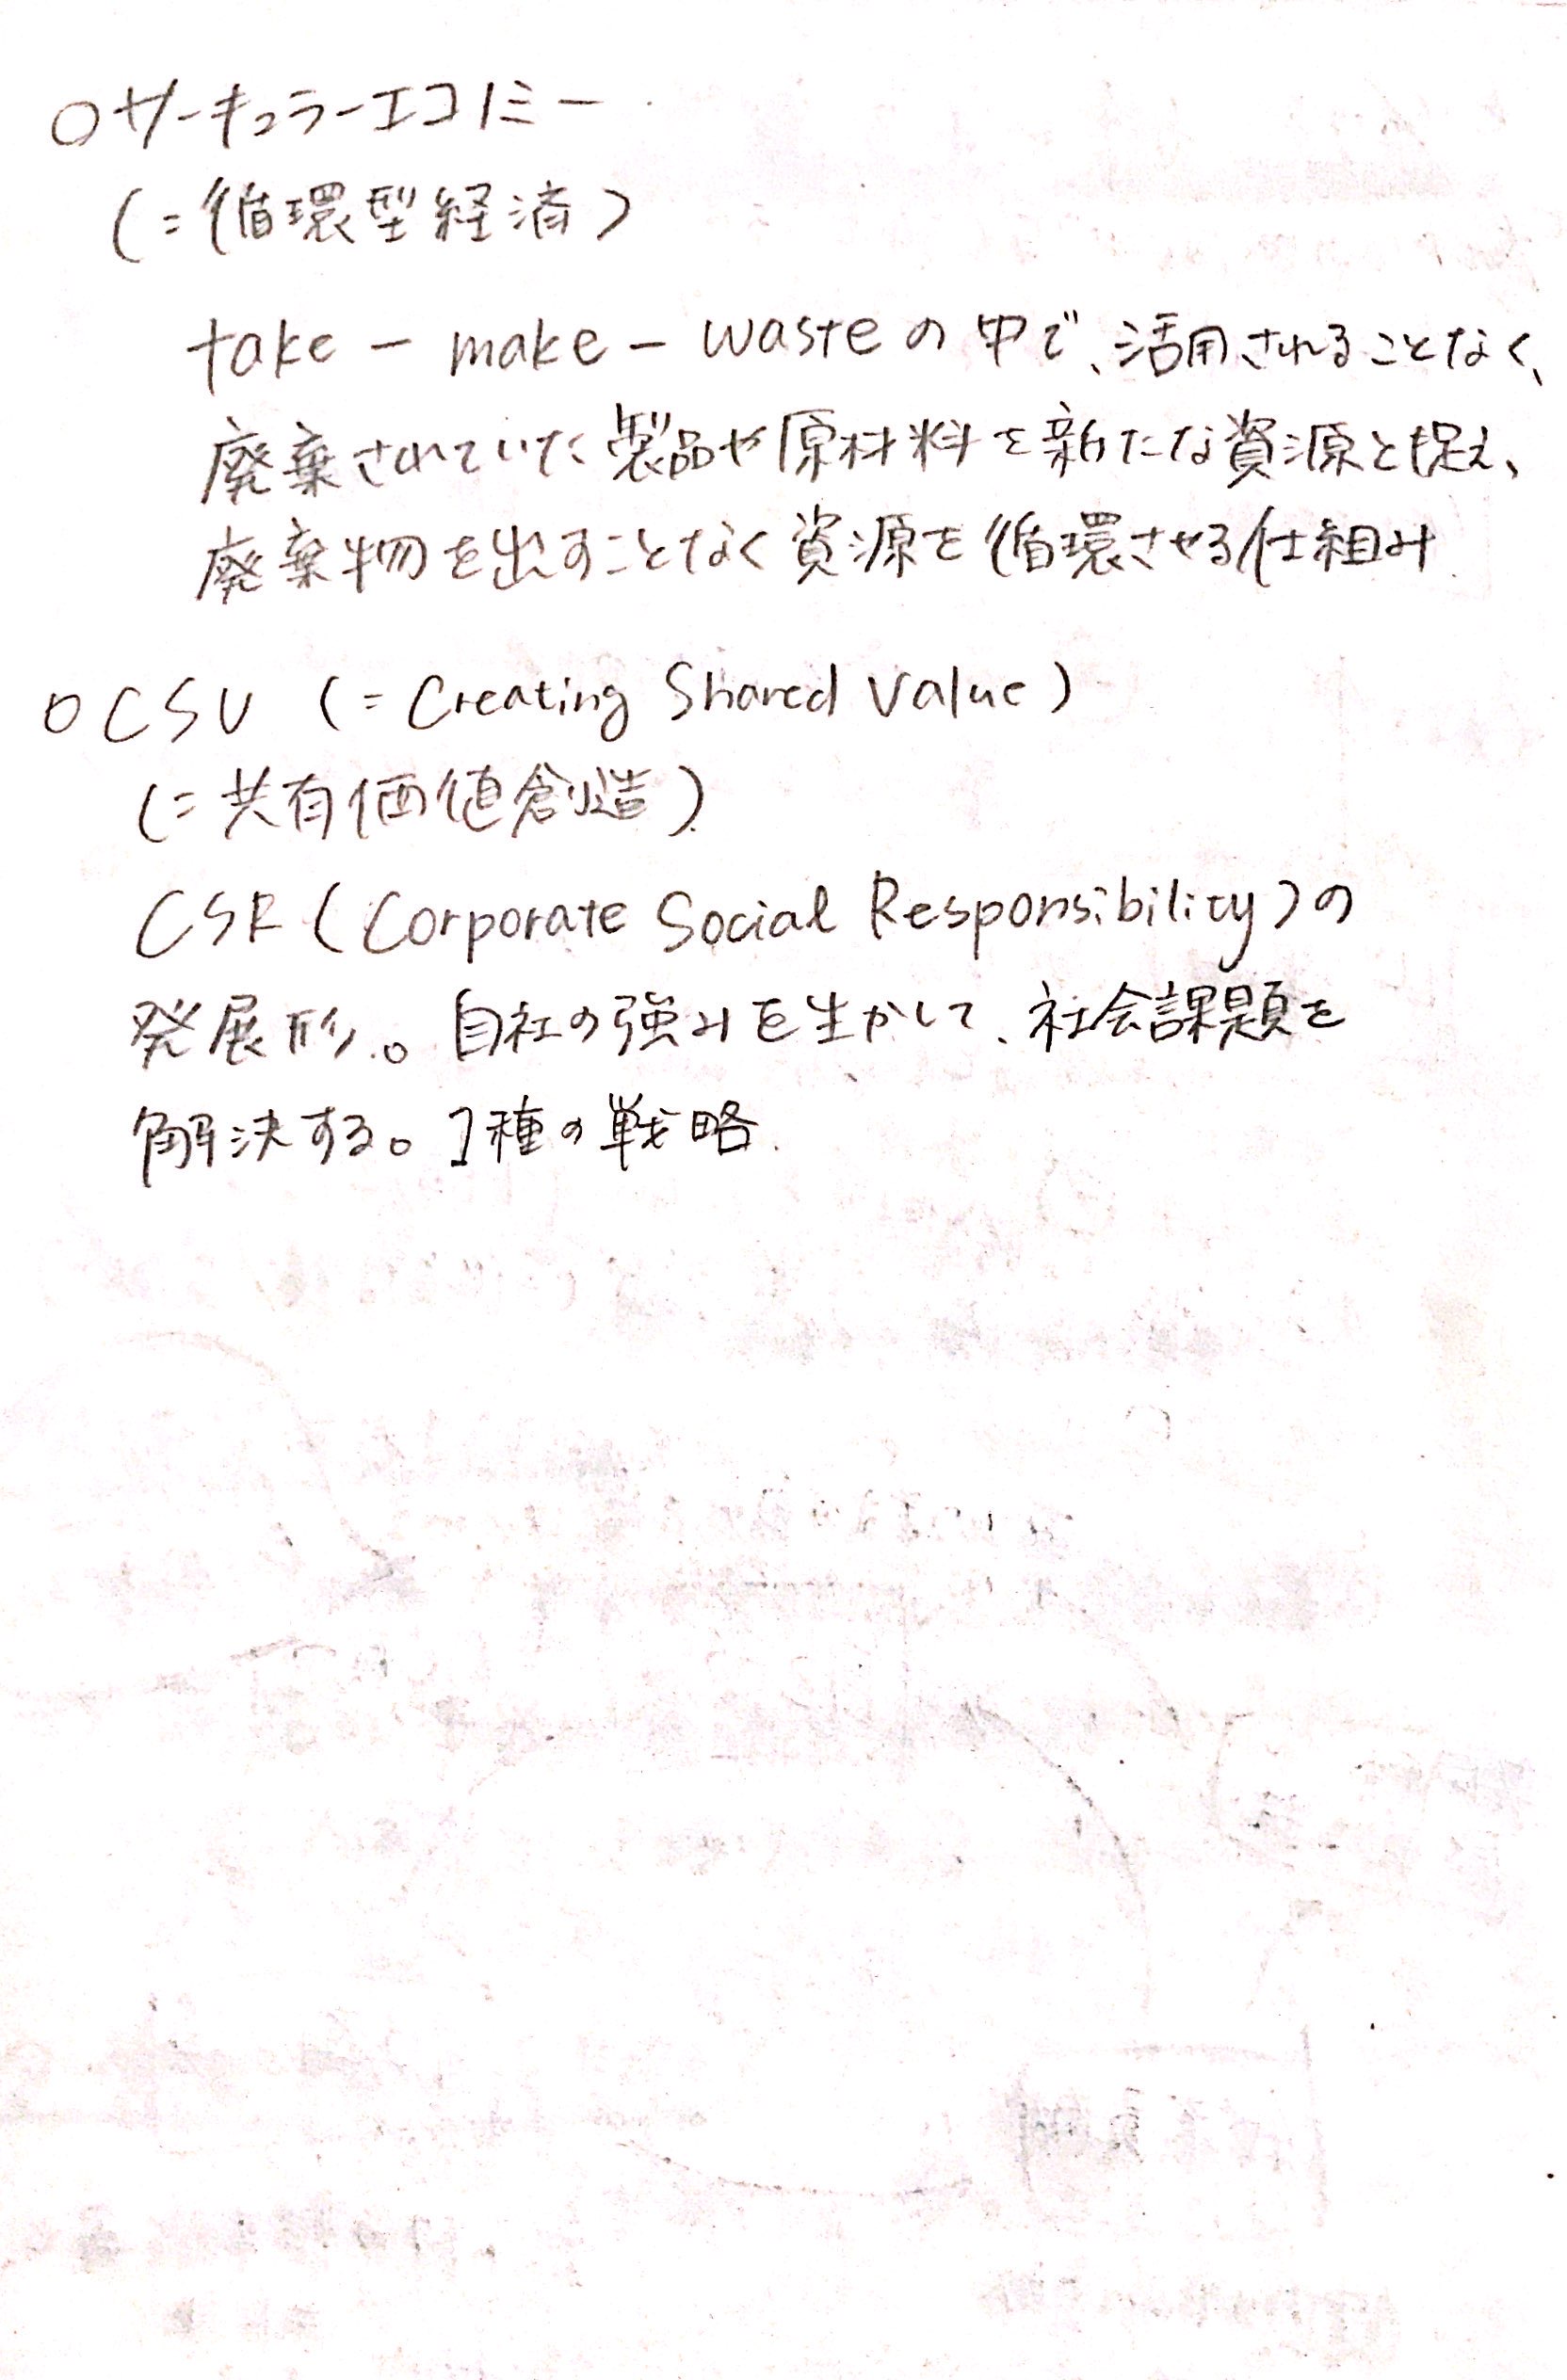 ○サーキュラーエコノミー
(=循環型経済)
take - make - wasteの中で、活用されることなく、
廃棄されていた製品や原材料を新たな資源と捉え、
廃棄物を出すことなく資源を循環させる仕組み
○CSV (= Creating Shared Value)
(=共有価値創造)
CSR (Corporate Social Responsibility)の
発展形。自社の強みを生かして、社会課題を
解決する。1種の戦略.